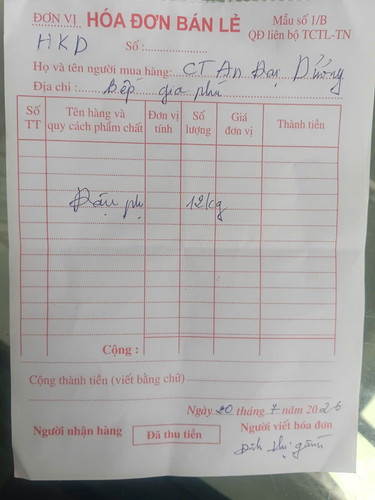 ĐƠN VỊ HÓA ĐƠN BÁN LẺ Mẫu số 1/B
HKD Số :.................... QĐ liên bộ TCTL-TN
Họ và tên người mua hàng: CT An Đại Dương
Địa chỉ : Bếp gia phú
Số TT Tên hàng và quy cách phẩm chất Đơn vị tính Số lượng Giá đơn vị Thành tiền
Đậu phụ 12kg
Cộng :
Cộng thành tiền (viết bằng chữ)
Ngày 20 tháng 7 năm 2026
Người nhận hàng Đã thu tiền Người viết hóa đơn